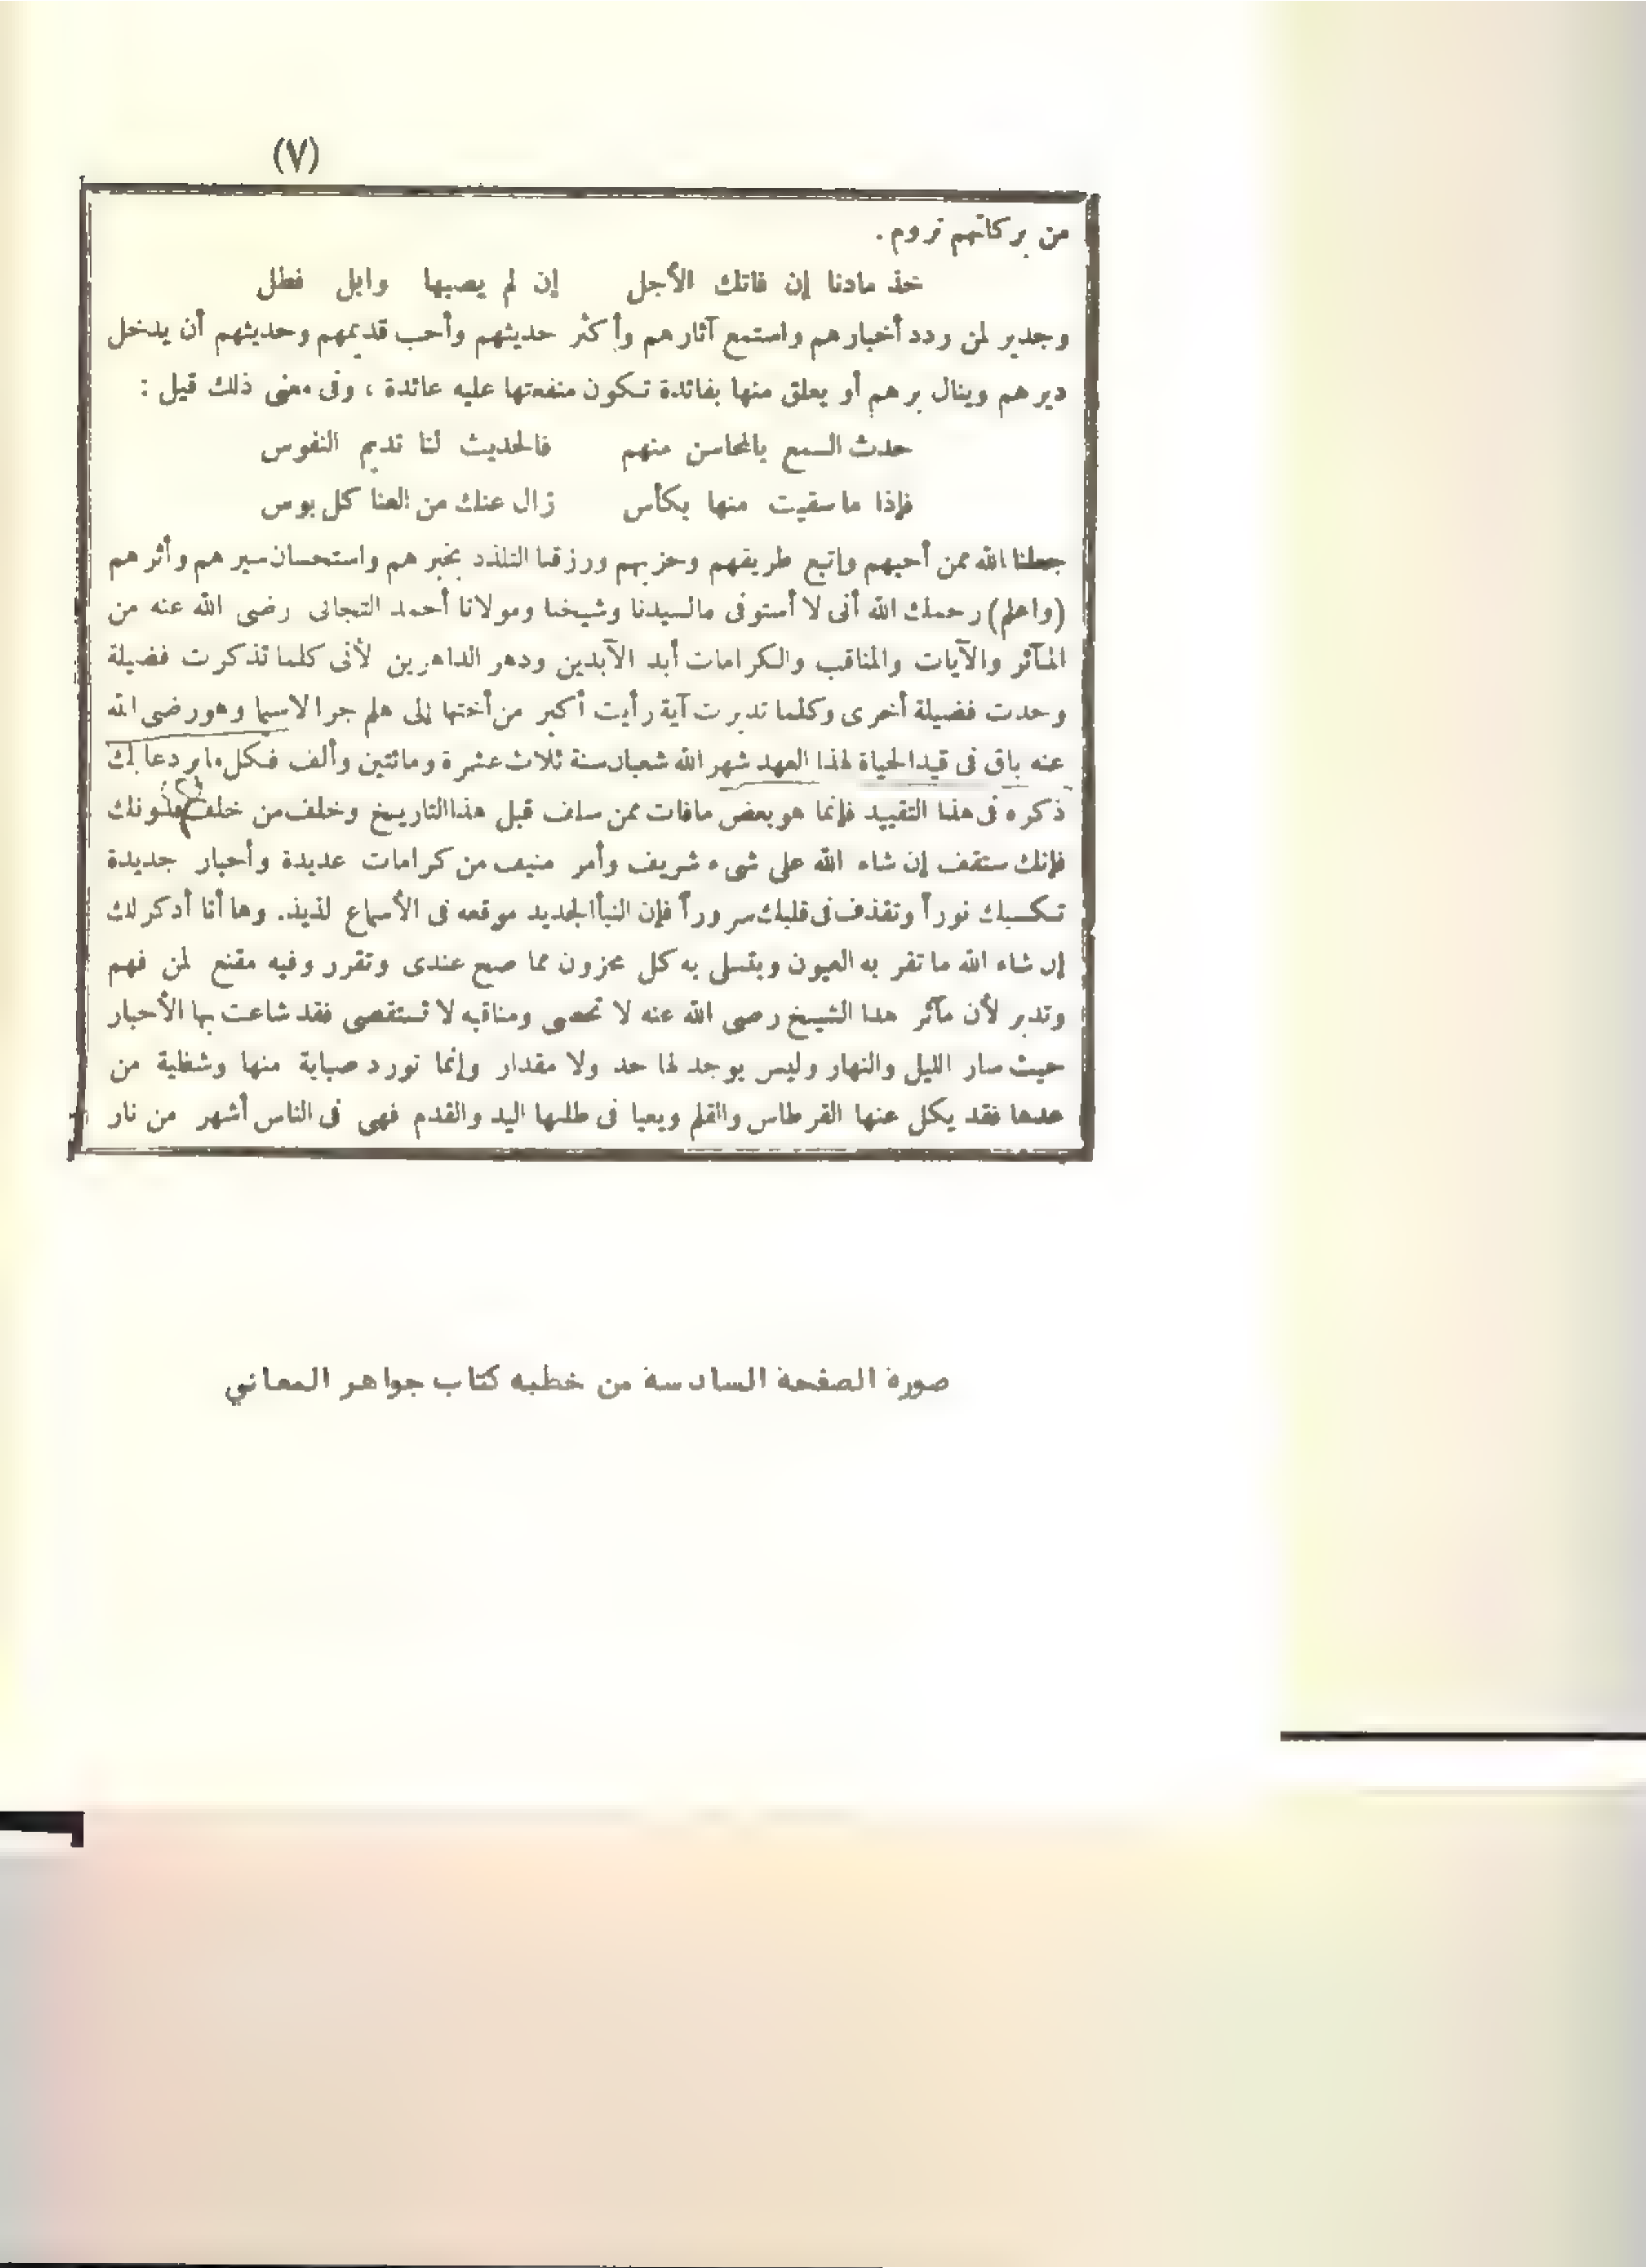 (٧)
من بركاتهم تروم .
خذ مادنا إن فاتك الأجل إن لم يصبها وابل فطل
وجدير لمن ردد أخبارهم واستمع آثارهم وأكثر حديثهم وأحب قديمهم وحديثهم أن يدخل
ديرهم وينال برهم أو يعلق منها بفائدة تكون منفعتها عليه عائدة ، وفى معنى ذلك قيل :
حدث السمع بالمحاسن منهم فالحديث لنا نديم النفوس
فإذا ماسقيت منها بكأس زال عنك من العنا كل بوس
جعلنا الله ممن أحبهم واتبع طريقهم وحزبهم ورزقنا التلذذ بخبرهم واستحسان سيرهم وأثرهم
(واعلم) رحمك الله أنى لا أستوفى مالسيدنا وشيخنا ومولانا أحمد التجانى رضى الله عنه من
المآثر والآيات والمناقب والكرامات أبد الآبدين ودهر الداهرين لأنى كلما تذكرت فضيلة
وجدت فضيلة أخرى وكلما تدبرت آية رأيت أكبر من أختها إلى هلم جرا لاسيما وهو رضى الله
عنه باق فى قيد الحياة لهذا العهد شهر الله شعبان سنة ثلاث عشرة ومائتين وألف فكل ما يرد عا بك
ذكره فى هذا التقييد فإنما هو بعض مافات ممن سلف قبل هذا التاريخ وخلف من خلف فدونك
فإنك ستقف إن شاء الله على شىء شريف وأمر منيف من كرامات عديدة وأخبار جديدة
تكسبك نوراً وتقذف فى قلبك سروراً فإن النبأ الجديد موقعه فى الأسماع لذيذ. وها أنا أذكر لك
إن شاء الله ما تقر به العيون ويتسلى به كل محزون مما صح عندى وتقرر وفيه مقنع لمن فهم
وتدبر لأن مآثر هذا الشيخ رضى الله عنه لا تحصى ومناقبه لا تستقصى فقد شاعت بها الأخبار
حيث سار الليل والنهار وليس يوجد لها حد ولا مقدار وإنما نورد صبابة منها وشظية من
عدها فقد يكل عنها القرطاس والقلم ويعيا فى طلبها اليد والقدم فهى فى الناس أشهر من نار
صورة الصفحة السادسة من خطبه كتاب جواهر المعاني